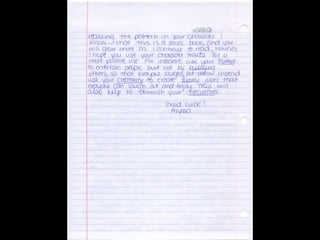 realizing the problem in your character. I
know that this is a series book, and you
will grow more as I continue to read, however,
I hope you use your character traits for a
more positive use. For instance, use your humor
to entertain people, but not by bullying
others, so that everyone laughs at them! Instead
use your creativity to create funny jokes that
everyone can laugh at and enjoy. This will
also help to diminish your insecurities.
Good Luck!
Alyssa